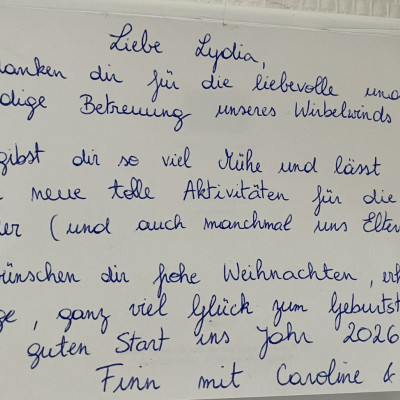 Liebe Lydia,
danken dir für die liebevolle und
dige Betreuung unseres Wirbelwinds
gibst dir so viel Mühe und lässt
neue tolle Aktivitäten für die
er (und auch manchmal uns Eltern
wünschen dir frohe Weihnachten, erh
ge, ganz viel Glück zum Geburtst
guten Start ins Jahr 2026
Finn mit Caroline &